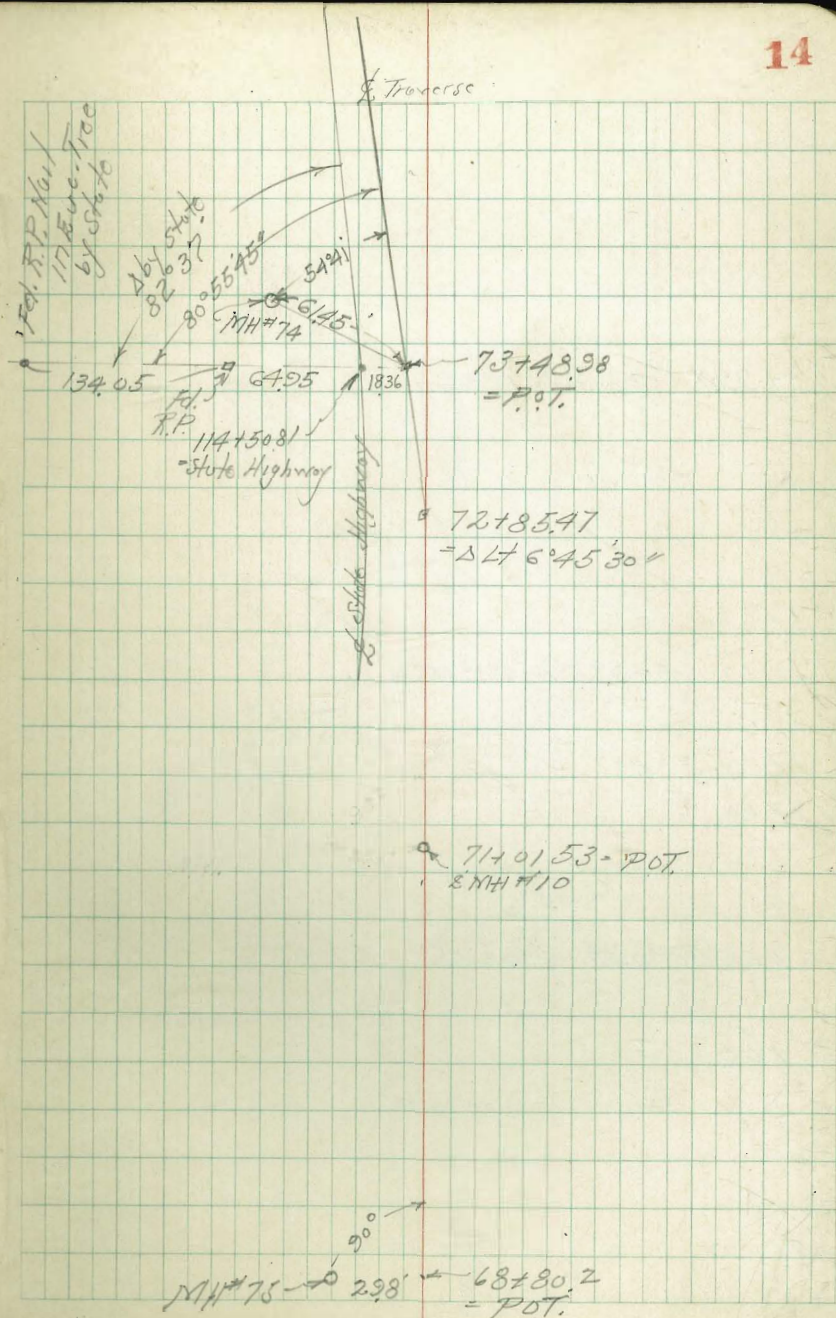 14
℄ Traverse
Fd. R.P. Nail
in Euc. Tree
by State
Δ by State
82°37'
80°55'45"
54°41'
61.45'
MH#74
134.05
64.95
18.36
73+48.98
= P.O.T.
Fd.
R.P.
114+50.81
=State Highway
℄ State Highway
72+85.47
=Δ Lt 6°45'30"
71+01.53= POT.
MH #10
90°
MH#75
29.8'
68+80.2
= POT.